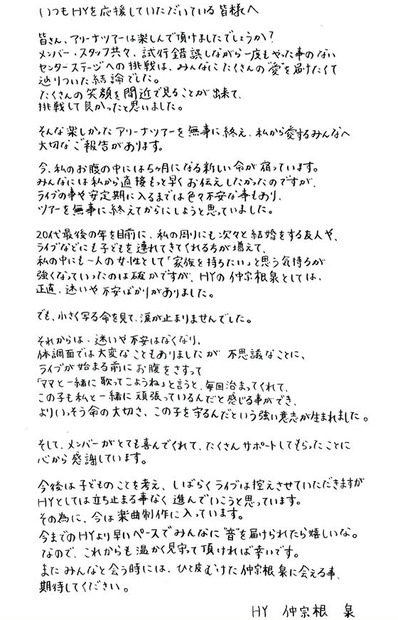 いつもHYを応援していただいている皆様へ
皆さん、アリーナツアーは楽しんで頂けましたでしょうか?
メンバー・スタッフ共々、試行錯誤しながら一度もやった事のない
センターステージへの挑戦は、みんなにたくさんの"愛"を届けたくて
辿りついた結論でした。
たくさんの笑顔を間近で見ることが出来て、
挑戦して良かったと思いました。
そんな楽しかったアリーナツアーを無事に終え、私から愛するみんなへ
大切なご報告があります。
今、私のお腹の中には5ヶ月になる新しい命が宿っています。
みんなには私から直接もっと早くお伝えしたかったのですが、
ライブの事や安定期に入るまでは色々不安な事もあり、
ツアーを無事に終えてからにしようと思っていました。
20代最後の年を目前に、私の周りにも次々と結婚をする友人や、
ライブなどにも子どもを連れてきてくれるうちが増えて、
私の中にも一人の女性として「家族を持ちたい」と思う気持ちが
強くなっていったのは確かですが、HYの仲宗根泉としては、
正直、迷いや不安ばかりがありました。
でも、小さく写る命を見て、涙が止まりませんでした。
それからは、迷いや不安はなくなり、
体調面では大変なこともありましたが 不思議なことに、
ライブが始まる前にお腹をさすって
「ママと一緒に歌ってこようね」と言うと、毎回治まってくれて、
この子も私と一緒に頑張っているんだと感じる事ができ、
よりいっそう命の大切さ、この子を守るんだという強い意志が生まれました。
そして、メンバーがとても喜んでくれて、たくさんサポートしてもらったことに
心から感謝しています。
今後は子どものことを考え、しばらくライブは控えさせていただきますが
HYとしては立ち止まる事なく進んでいこうと思っています。
その為に、今は楽曲制作に入っています。
今までのHYより早いペースでみんなに"音"を届けられたら嬉しいな。
なので、これからも温かく見守って頂ければ幸いです。
またみんなと会う時には、ひと皮むけた仲宗根泉に会える事、
期待してください。
HY 仲宗根 泉